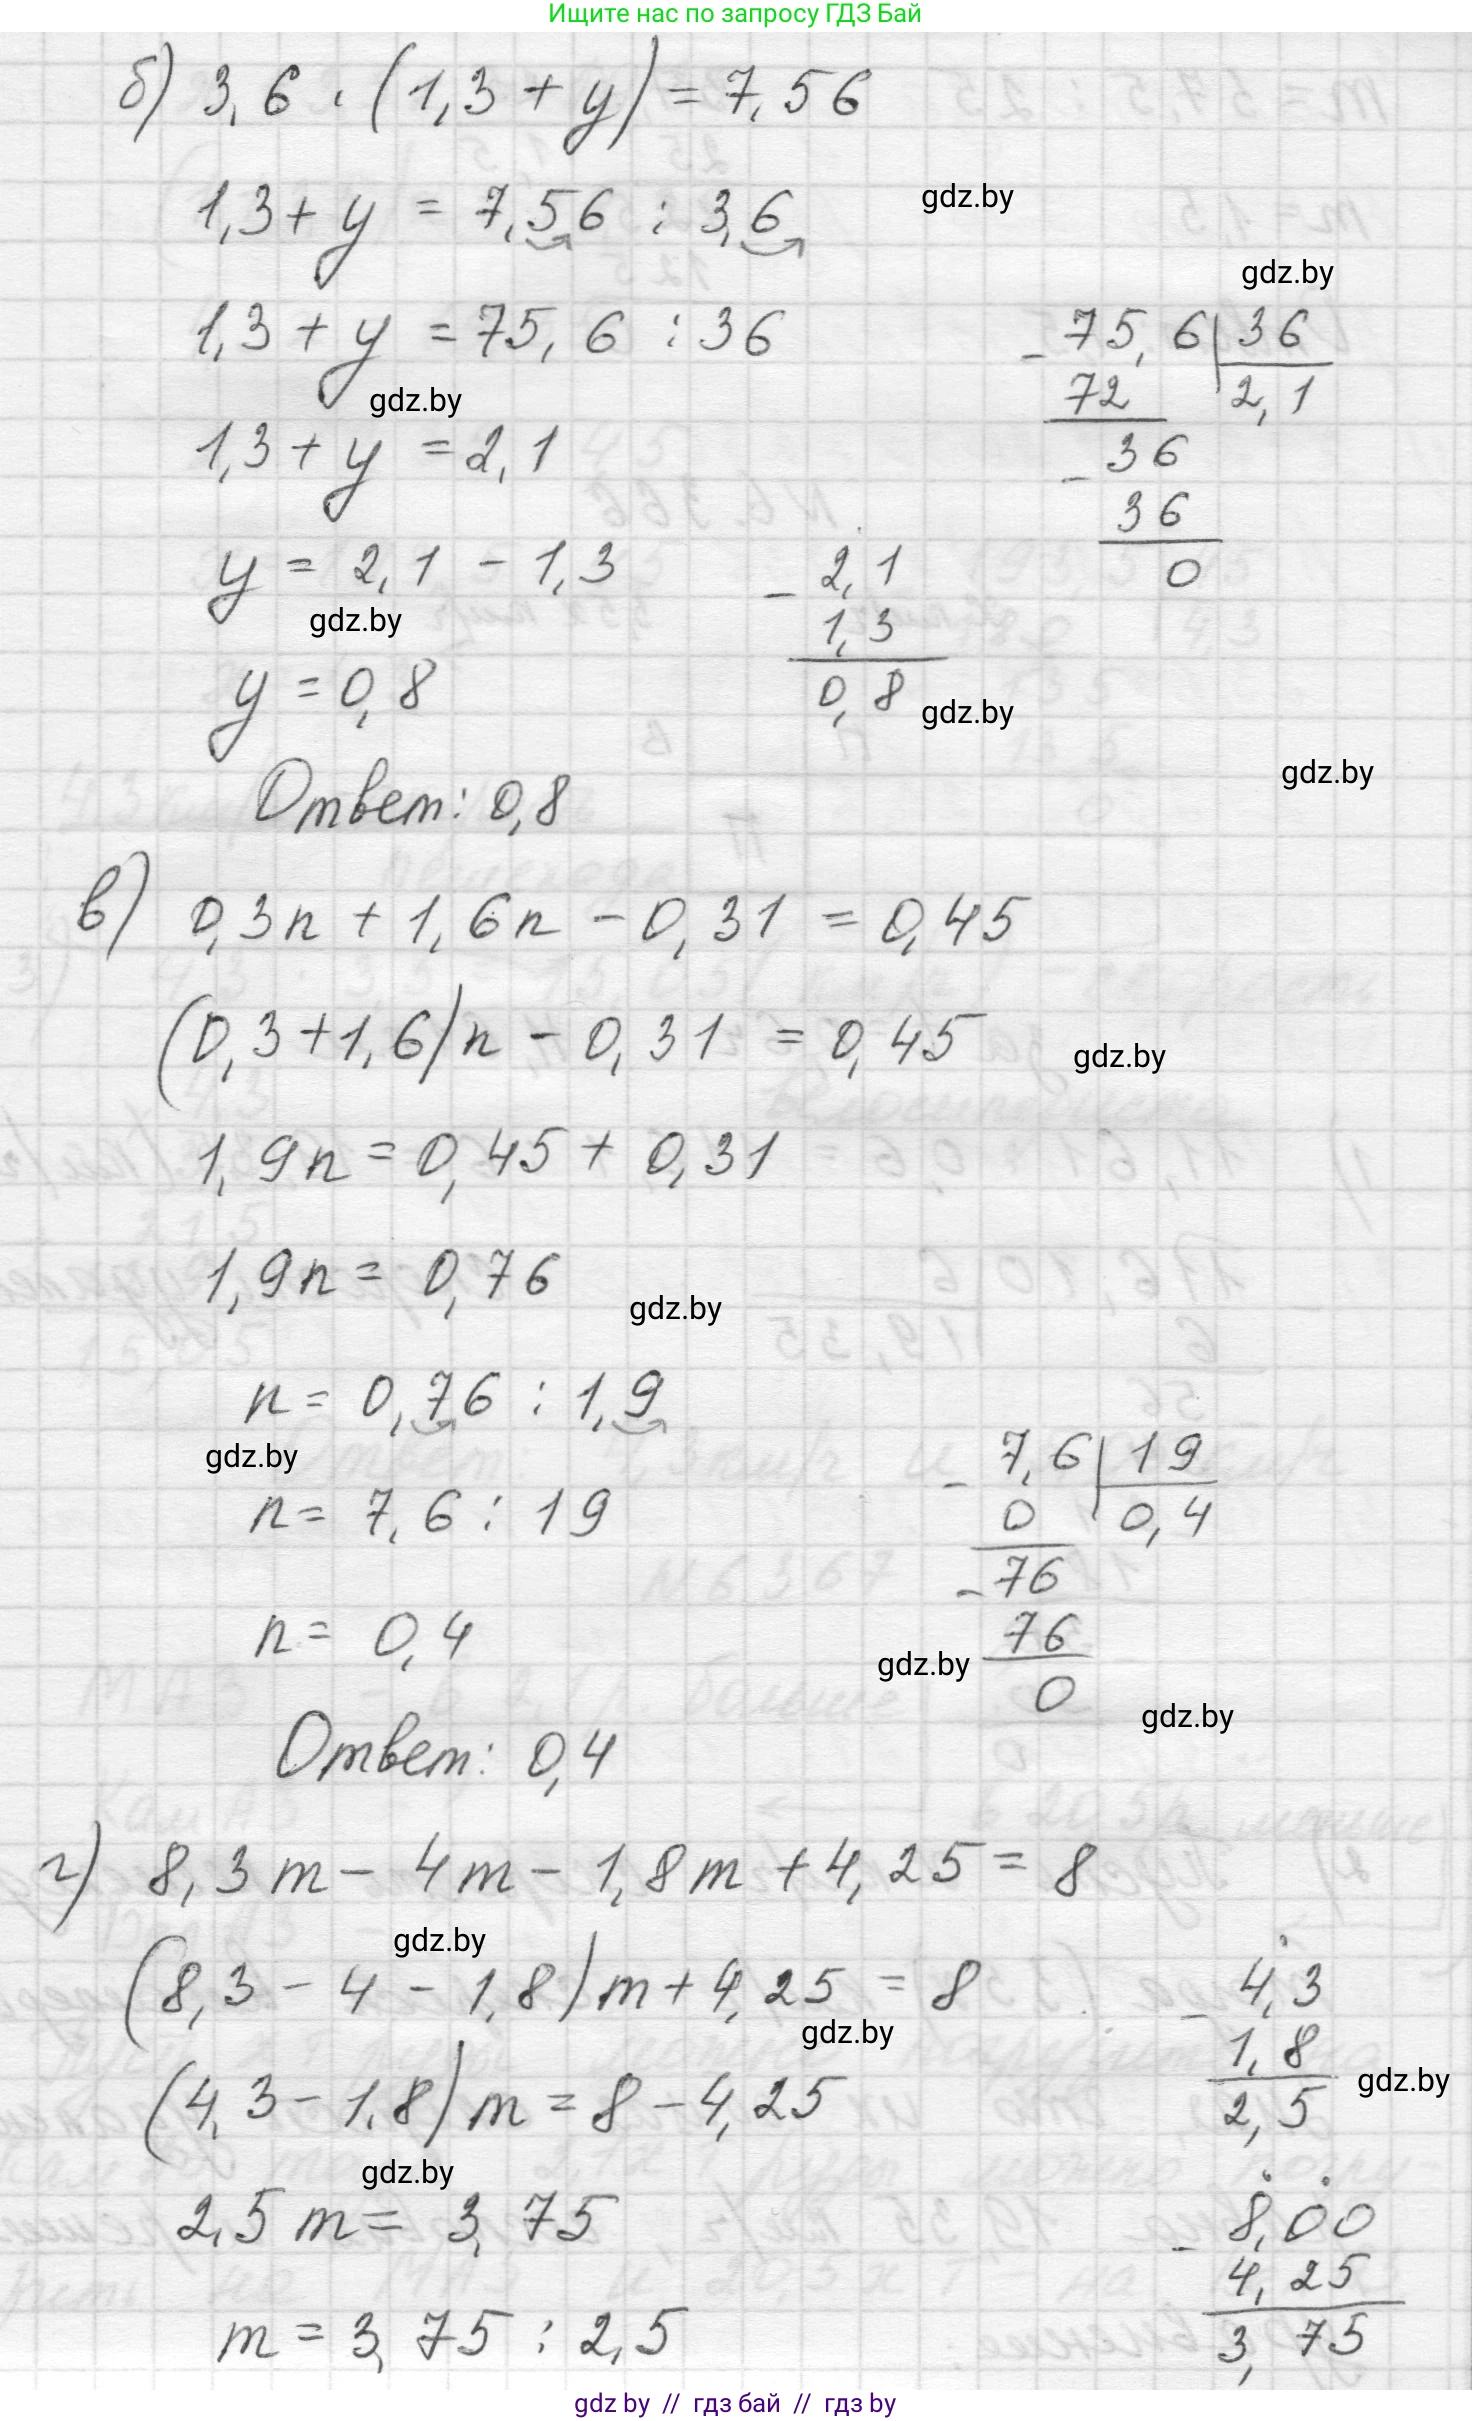 Ищите нас по запросу ГДЗ Бай
б) 3,6 · (1,3 + y) = 7,56
1,3 + y = 7,56 : 3,6
gdz.by
gdz.by
1,3 + y = 75,6 : 36
- 75,6 | 36
72 2,1
gdz.by
1,3 + y = 2,1
- 36
36
0
y = 2,1 - 1,3
- 2,1
1,3
0,8
gdz.by
y = 0,8
gdz.by
gdz.by
Ответ: 0,8
в) 0,3n + 1,6n - 0,31 = 0,45
(0,3 + 1,6)n - 0,31 = 0,45
gdz.by
1,9n = 0,45 + 0,31
1,9n = 0,76
gdz.by
n = 0,76 : 1,9
gdz.by
n = 7,6 : 19
- 7,6 | 19
0 0,4
- 76
76
0
n = 0,4
gdz.by
gdz.by
Ответ: 0,4
г) 8,3m - 4m - 1,8m + 4,25 = 8
gdz.by
(8,3 - 4 - 1,8)m + 4,25 = 8
- 4,3
1,8
2,5
gdz.by
gdz.by
(4,3 - 1,8)m = 8 - 4,25
gdz.by
2,5m = 3,75
- 8,00
4,25
3,75
m = 3,75 : 2,5
gdz by // гдз бай // гдз by